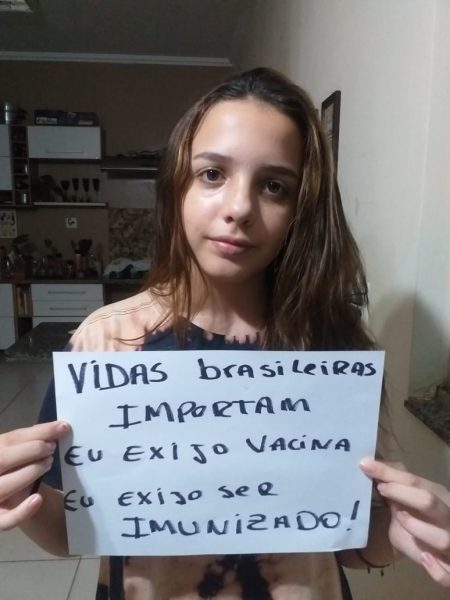 VIDAS brasileiras
IMPORTAM
EU EXIJO VACINA
EU EXIJO SER
IMUNIZADO!